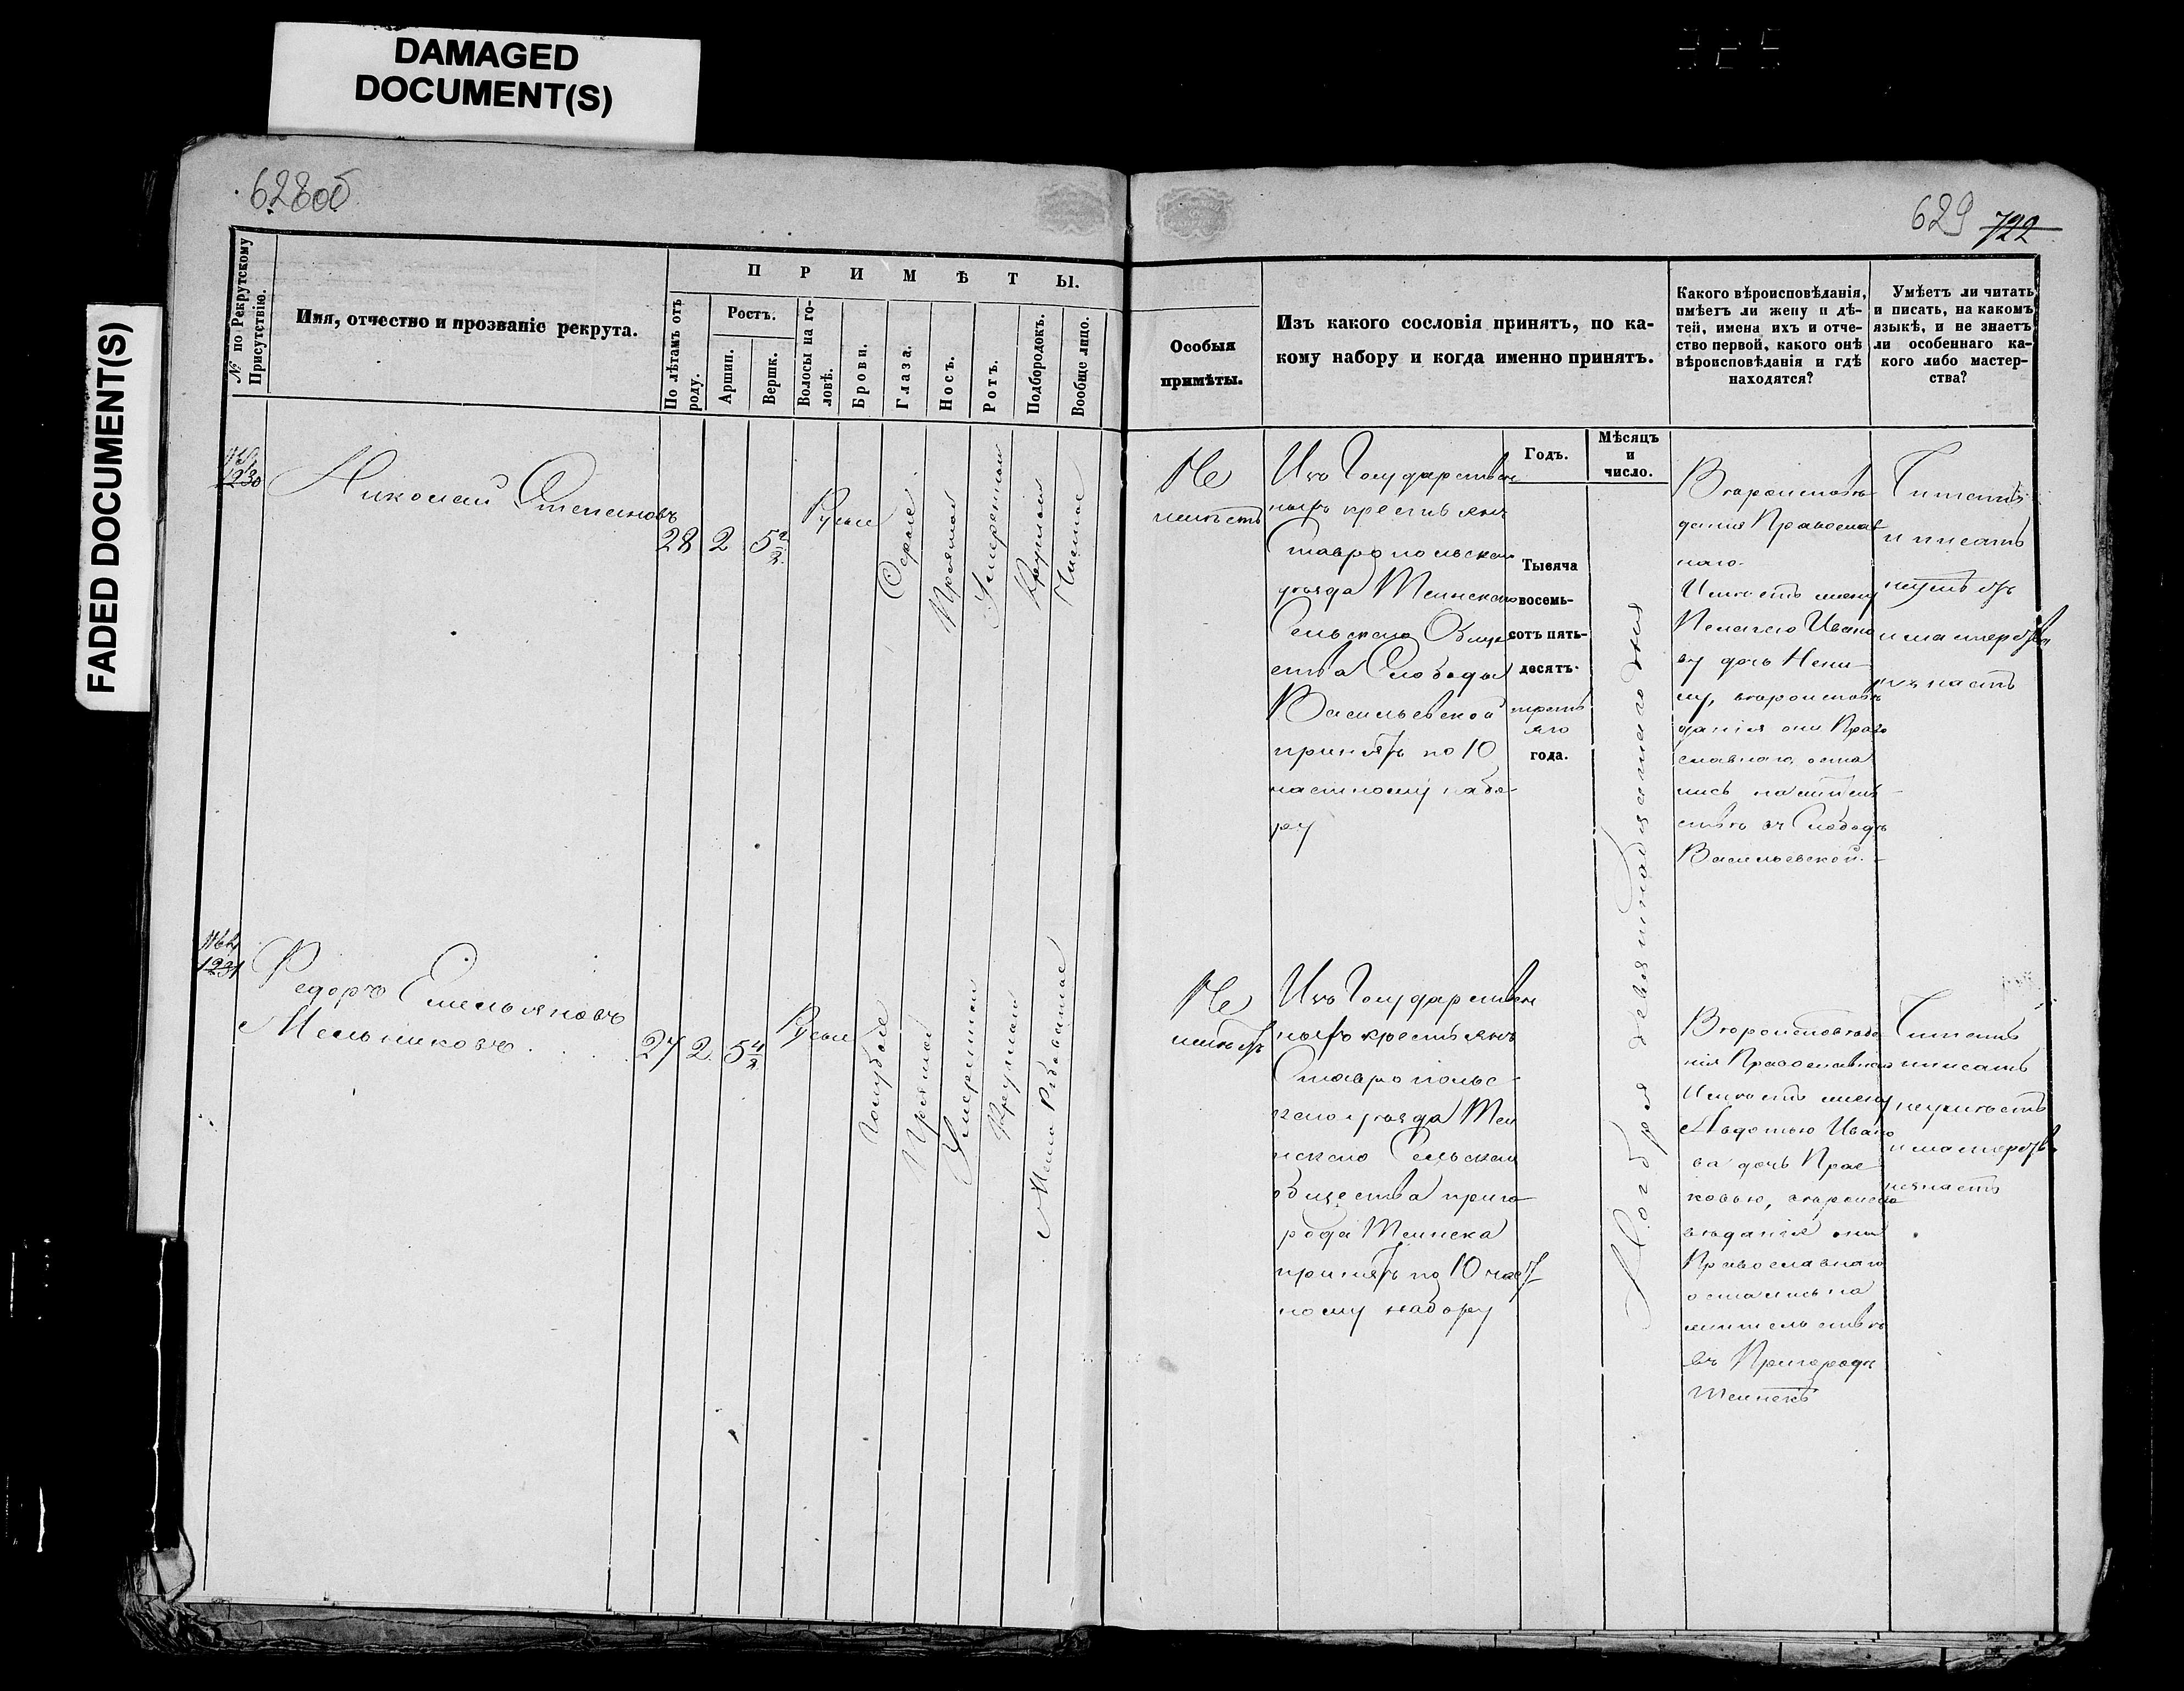 DAMAGED
DOCUMENT(S)
FADED DOCUMENT(S)
628об
629 722
№ по Рекрутскому
Присутствію.
Имя, отчество и прозваніе рекрута.
ПРИМѢТЫ.
По лѣтамъ отъ
роду.
Ростъ.
Аршин.
Вершк.
Волосы на го-
ловѣ.
Брови.
Глаза.
Носъ.
Ротъ.
Подбородокъ.
Вообще лицо.
Особыя
примѣты.
Изъ какого сословія принятъ, по ка-
кому набору и когда именно принятъ.
Какого вѣроисповѣданія,
имѣетъ ли жену и дѣ-
тей, имена ихъ и отче-
ство первой, какого онѣ
вѣроисповѣданія и гдѣ
находятся?
Умѣетъ ли читать
и писать, на какомъ
языкѣ, и не знаетъ
ли особеннаго ка-
кого либо мастер-
ства?
Годъ.
Мѣсяцъ
и
число.
1230
Николай Степановъ
28 2 5 2/2
Русые
Серые
Прямой
Умеренный
Круглый
Чистое
Не
имѣетъ
Изъ Государствен
ныхъ крестьянъ
Ставропольскаго
уѣзда
Сельскаго Обще
ства Слободы
Васильевской
принятъ по 10
частному набо-
ру
Тысяча
восемь-
сотъ пять-
десятъ-
третъ
яго
года.
Ноября девятнадцатаго дня
Вѣроисповѣ
данія Православ
наго.
Имѣетъ жену
Пелагею Ивано
ву дочь
вѣроисповѣ
данія они Право
славнаго, оста
лись на житель
ствѣ въ Слободѣ
Васильевской.
Читать
и писать
неумѣетъ
и мастерства
незнаетъ
1231
Федоръ Емельяновъ
Мельниковъ
27 2 5 4/8
Русые
Голубые
Прямой
Умеренный
Круглый
Мело Рябоватое
Не
имѣетъ
Изъ Государствен
ныхъ крестьянъ
Ставропольс-
каго уѣзда
Сельскаго
Общества приго-
рода
принятъ по 10 част
ному набору
Вѣроисповѣда
нія Православнаго
Имѣетъ жену
Авдотью Ивано
ва дочь Прас
ковью, вѣроиспо
вѣданія они
Православнаго
остались на
жительствѣ
въ Пригородѣ
Читать
и писать
неумѣетъ
и мастерства
незнаетъ